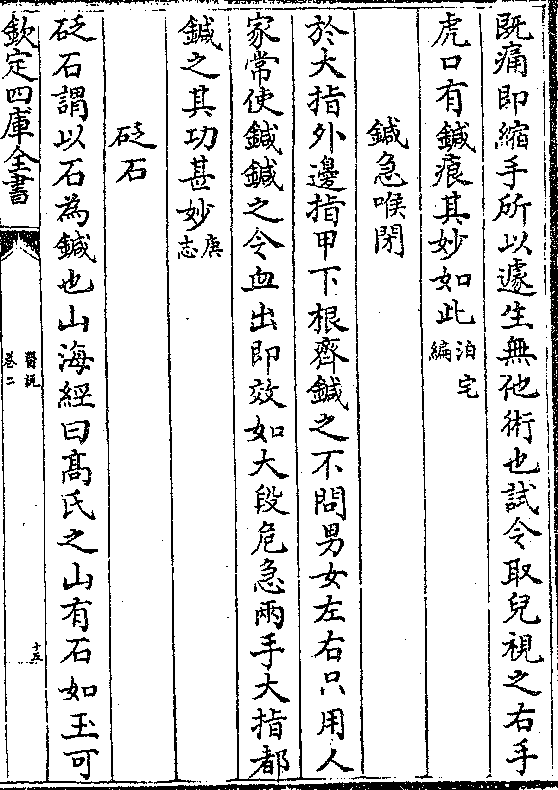 既痛即縮手所以遽生無他術也試令取兒視之右手
虎口有鍼痕其妙如此泊宅編
鍼急喉閉
於大指外邊指甲下根齊鍼之不問男女左右只用人
家常使鍼鍼之令血出即效如大段危急兩手大指都
鍼之其功甚妙庚志
砭石
砭石謂以石為鍼也山海經曰高氏之山有石如玉可
欽定四庫全書
醫説
卷二
十五